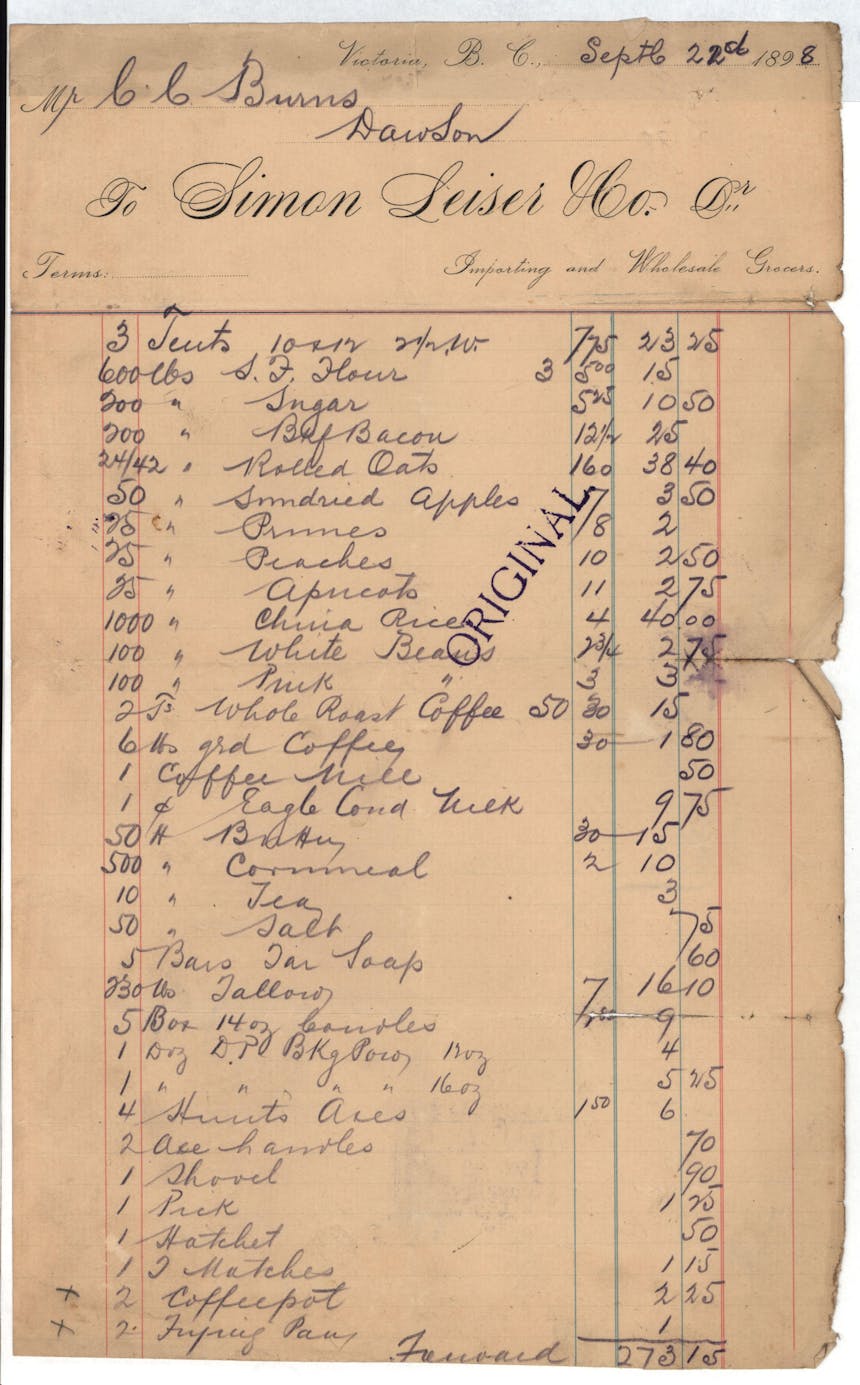 Victoria, B. C., Septb 22nd 1898
Mr C C Burns
Dawson
To Simon Leiser & Co. Dr.
Terms: Importing and Wholesale Grocers.
3 Tents 10x12 2 1/2 W. 7 75 23 25
600 lbs S. F. Flour 3 5 00 15
200 " Sugar 5 25 10 50
200 " Bacon 12 1/2 25
24/42 " Rolled Oats 1 60 38 40
50 " Sundried Apples 7 3 50
25 " Prunes 8 2
25 " Peaches 10 2 50
25 " Apricots 11 2 75
1000 " China Rice 4 40 00
100 " White Beans 2 3/4 2 75
100 " Pink " 3 3
ORIGINAL
2 Ts Whole Roast Coffee 50 30 15
6 lbs grd Coffee 30 1 80
1 Coffee Mill 50
1 c Eagle Cond Milk 9 75
50 # Butter 30 15
500 " Cornmeal 2 10
10 " Tea 3
50 " Salt 75
5 Bars Tar Soap 60
230 lbs Tallow 7 16 10
5 Box 14oz Candles 1 80 9
1 Doz D.P. BKg Pow 12oz 4
1 " " " " 16oz 5 25
4 Hunts Axes 1 50 6
2 Axe handles 70
1 Shovel 90
1 Pick 1 25
1 Hatchet 50
1 T Matches 1 15
x 2 Coffeepot 2 25
x 2 Frying Pans 1
Forward 273 15